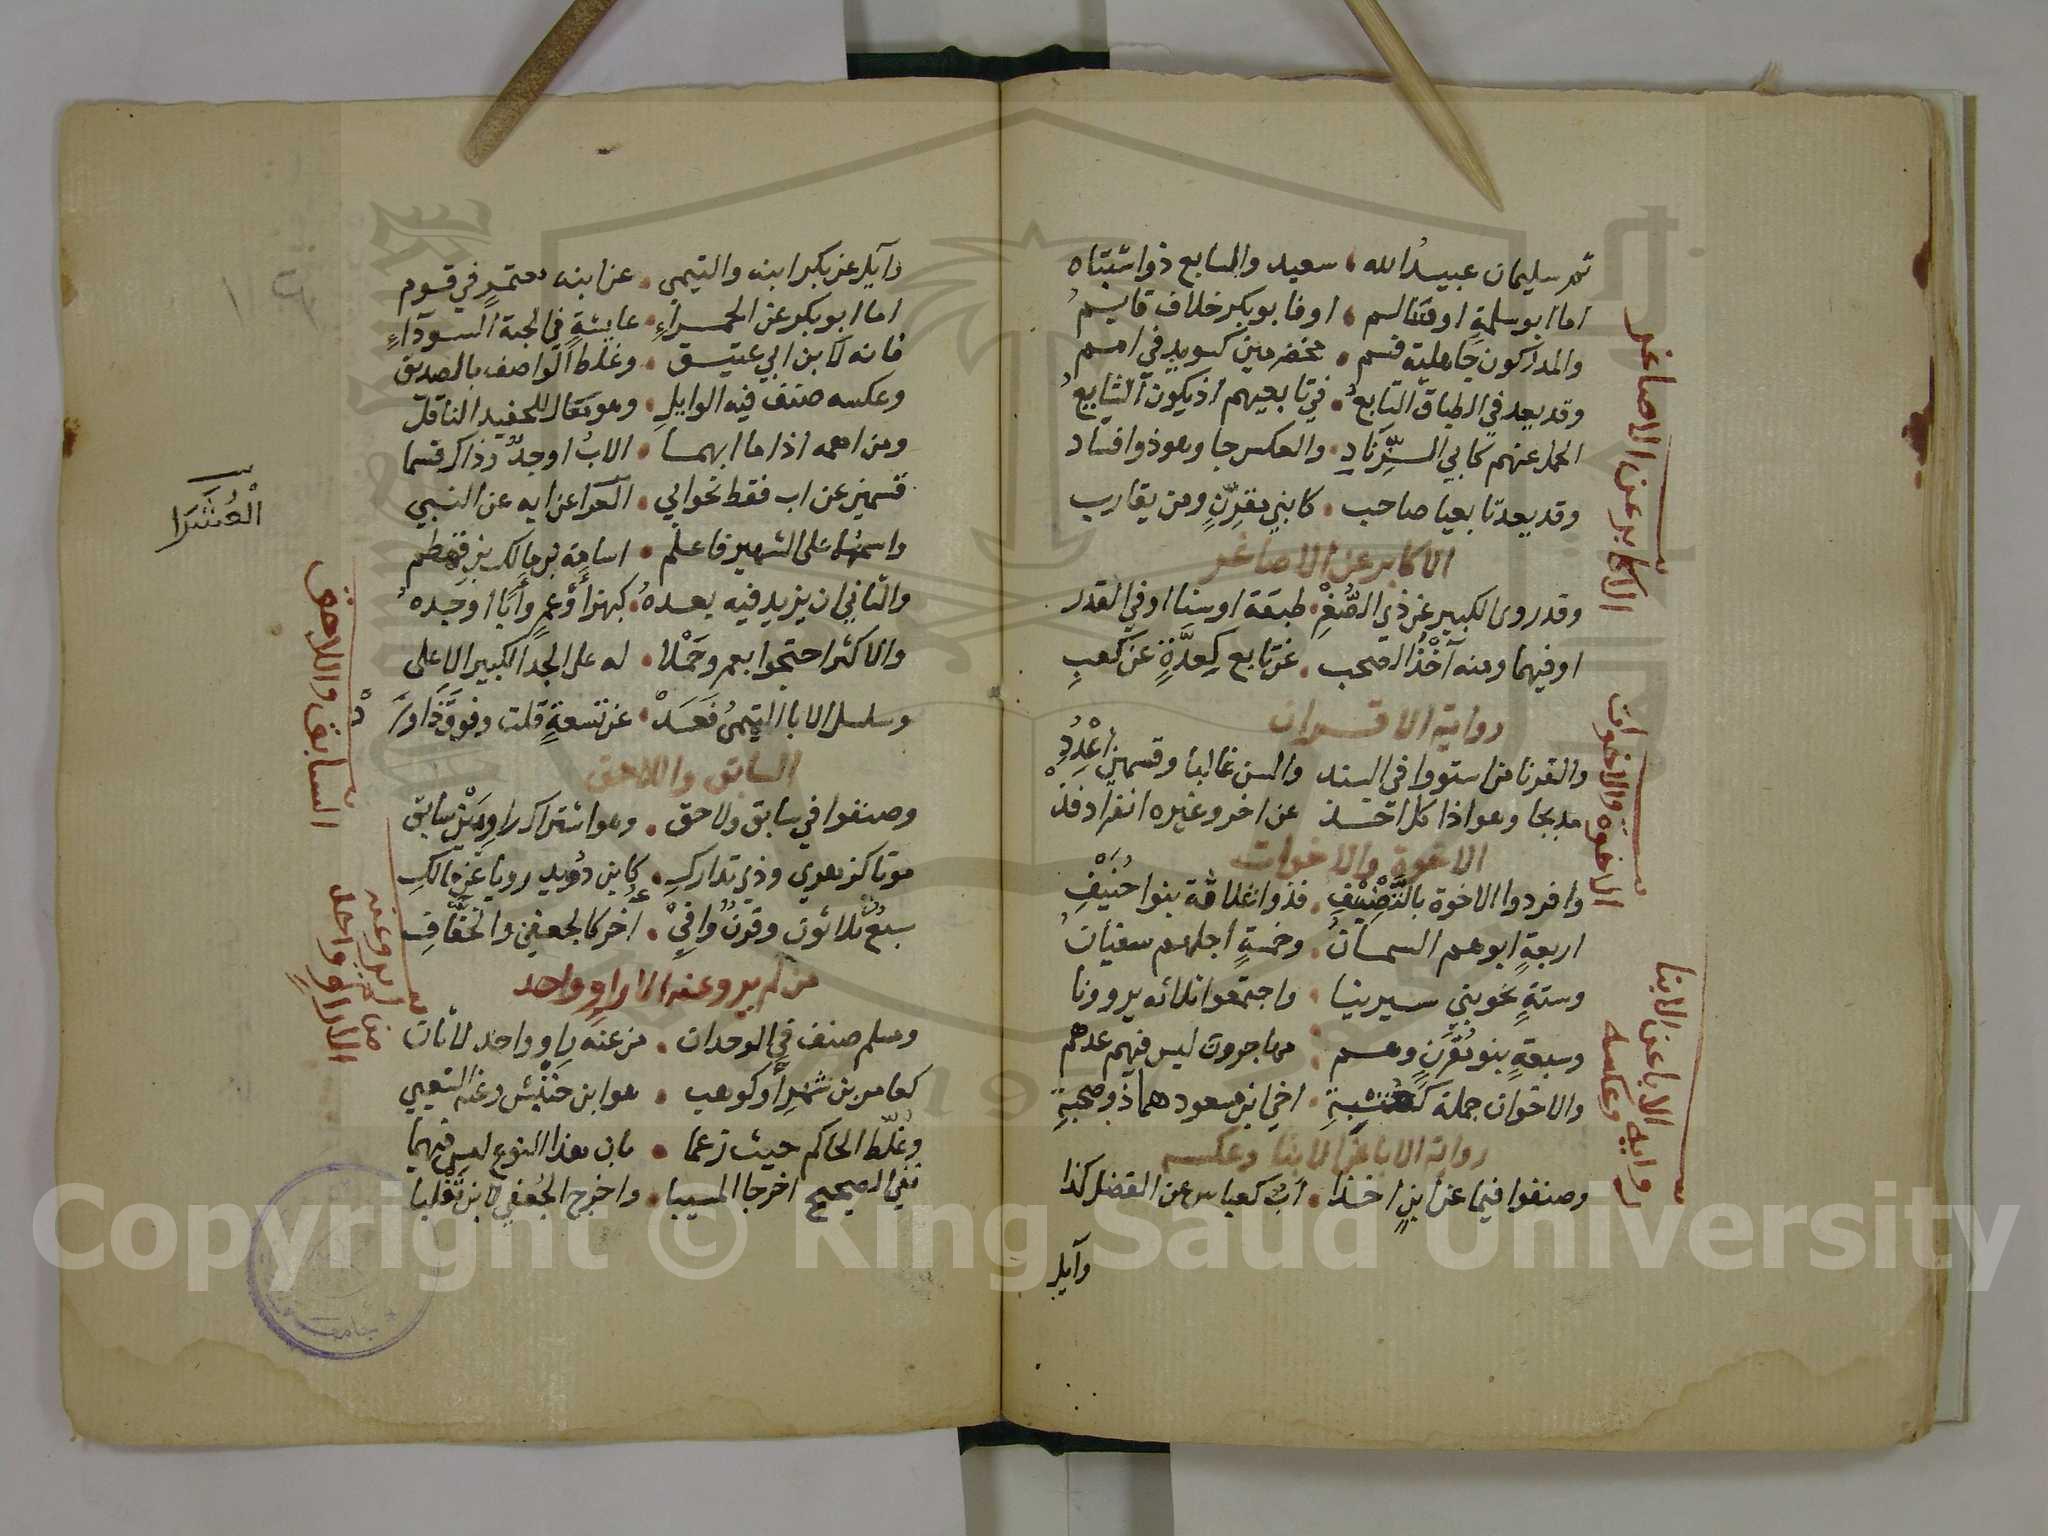 ثم سليمان عبيد الله ، سعيد والسابع ذو اشتباه
اما ابو سلمة او سالم ، او فابو بكر خلاف قايم
والمدركون جاهلية فسم . مخضرمين كسويد في امم
وقد يعد في الطباق التابع . في تابعيهم اذ يكون الشايع
الحمل عنهم كابي الزناد . والعكس جا وهو ذو افساد
وقد يعد تابعيا صاحب . كابني مقرن ومن يقارب
الاكابر عن الاصاغر
وقد روى الكبير عن ذي الصغر . طبقة او سنا او في القدر
او فيهما ومنه اخذ الصحب . عن تابع كعدة عن كعب
رواية الاقران
والقرنا من استووا في السند والسن غالبا وقسمين اعدد
مدبجا وهو اذا كل اخذ عن اخر وغيره انفراد فذ
الاخوة والاخوات
وافردوا الاخوة بالتصنيف . فذو اثلاثة بنوا حنيف
اربعة ابوهم السمان . وخمسة اجلهم سفيان
وستة نحو بني سيرينا . واجتمعوا ثلاثة يروونا
وسبعة بنو مقرن وهم . مهاجرون ليس فيهم عدهم
والاخوان جملة كعتبة . اخي ابن مسعود هما ذو صحبة
رواية الابا عن الابنا وعكسه
وصنفوا فيما عن ابن اخذا . اب كعباس عن الفضل كذا
وآيل
الاكابر عن الاصاغر
الاخوة والاخوات
رواية الابا عن الابنا
وعكسه
وآيل عن بكر ابنه والتيمي . عن ابنه معتمر في قوم
اما ابو بكر عن الحمراء . عايشة في الحبة السوداء
فانه لابن ابي عتيق . وغلط الواصف بالصديق
وعكسه صنف فيه الوايلي . وهو معال للحفيد الناقل
ومن اهمه اذا ما ابهما . الاب او جد وذاك قسما
قسمين عن اب فقط نحو ابي . العشرا عن ابيه عن النبي
واسمها على الشهير فاعلم . اسامة بن مالك بن قهطم
والثاني ان يزيد فيه بعده . كبهز او عمرو ابا او جده
والاكثر احتجوا بعمرو حملا . له على الجد الكبير الاعلى
وسلسل الابا التيمي فعد . عن تسعة قلت وفوق ذا ورد
السابق واللاحق
وصنفوا في سابق ولاحق . وهو اشتراك راويين سابق
موتا كزهري وذي تدارك . كابن دويد رويا عن مالك
سبع ثلاثون وقرن وافي . اخر كالجعفي والخفاف
من لم يرو عنه الا راو واحد
ومسلم صنف في الوحدان . من عنه راو واحد لا ثان
كعامر بن شهر او كوهب . هو ابن خنبش وعنه الشعبي
وغلط الحاكم حيث زعما . بان هذا النوع ليس فيهما
ففي الصحيح اخرجا المسيبا . واخرج الجعفي لابن تغلبا
العشرا
السابق واللاحق
من لم يرو عنه
الا راو واحد
Copyright © King Saud University